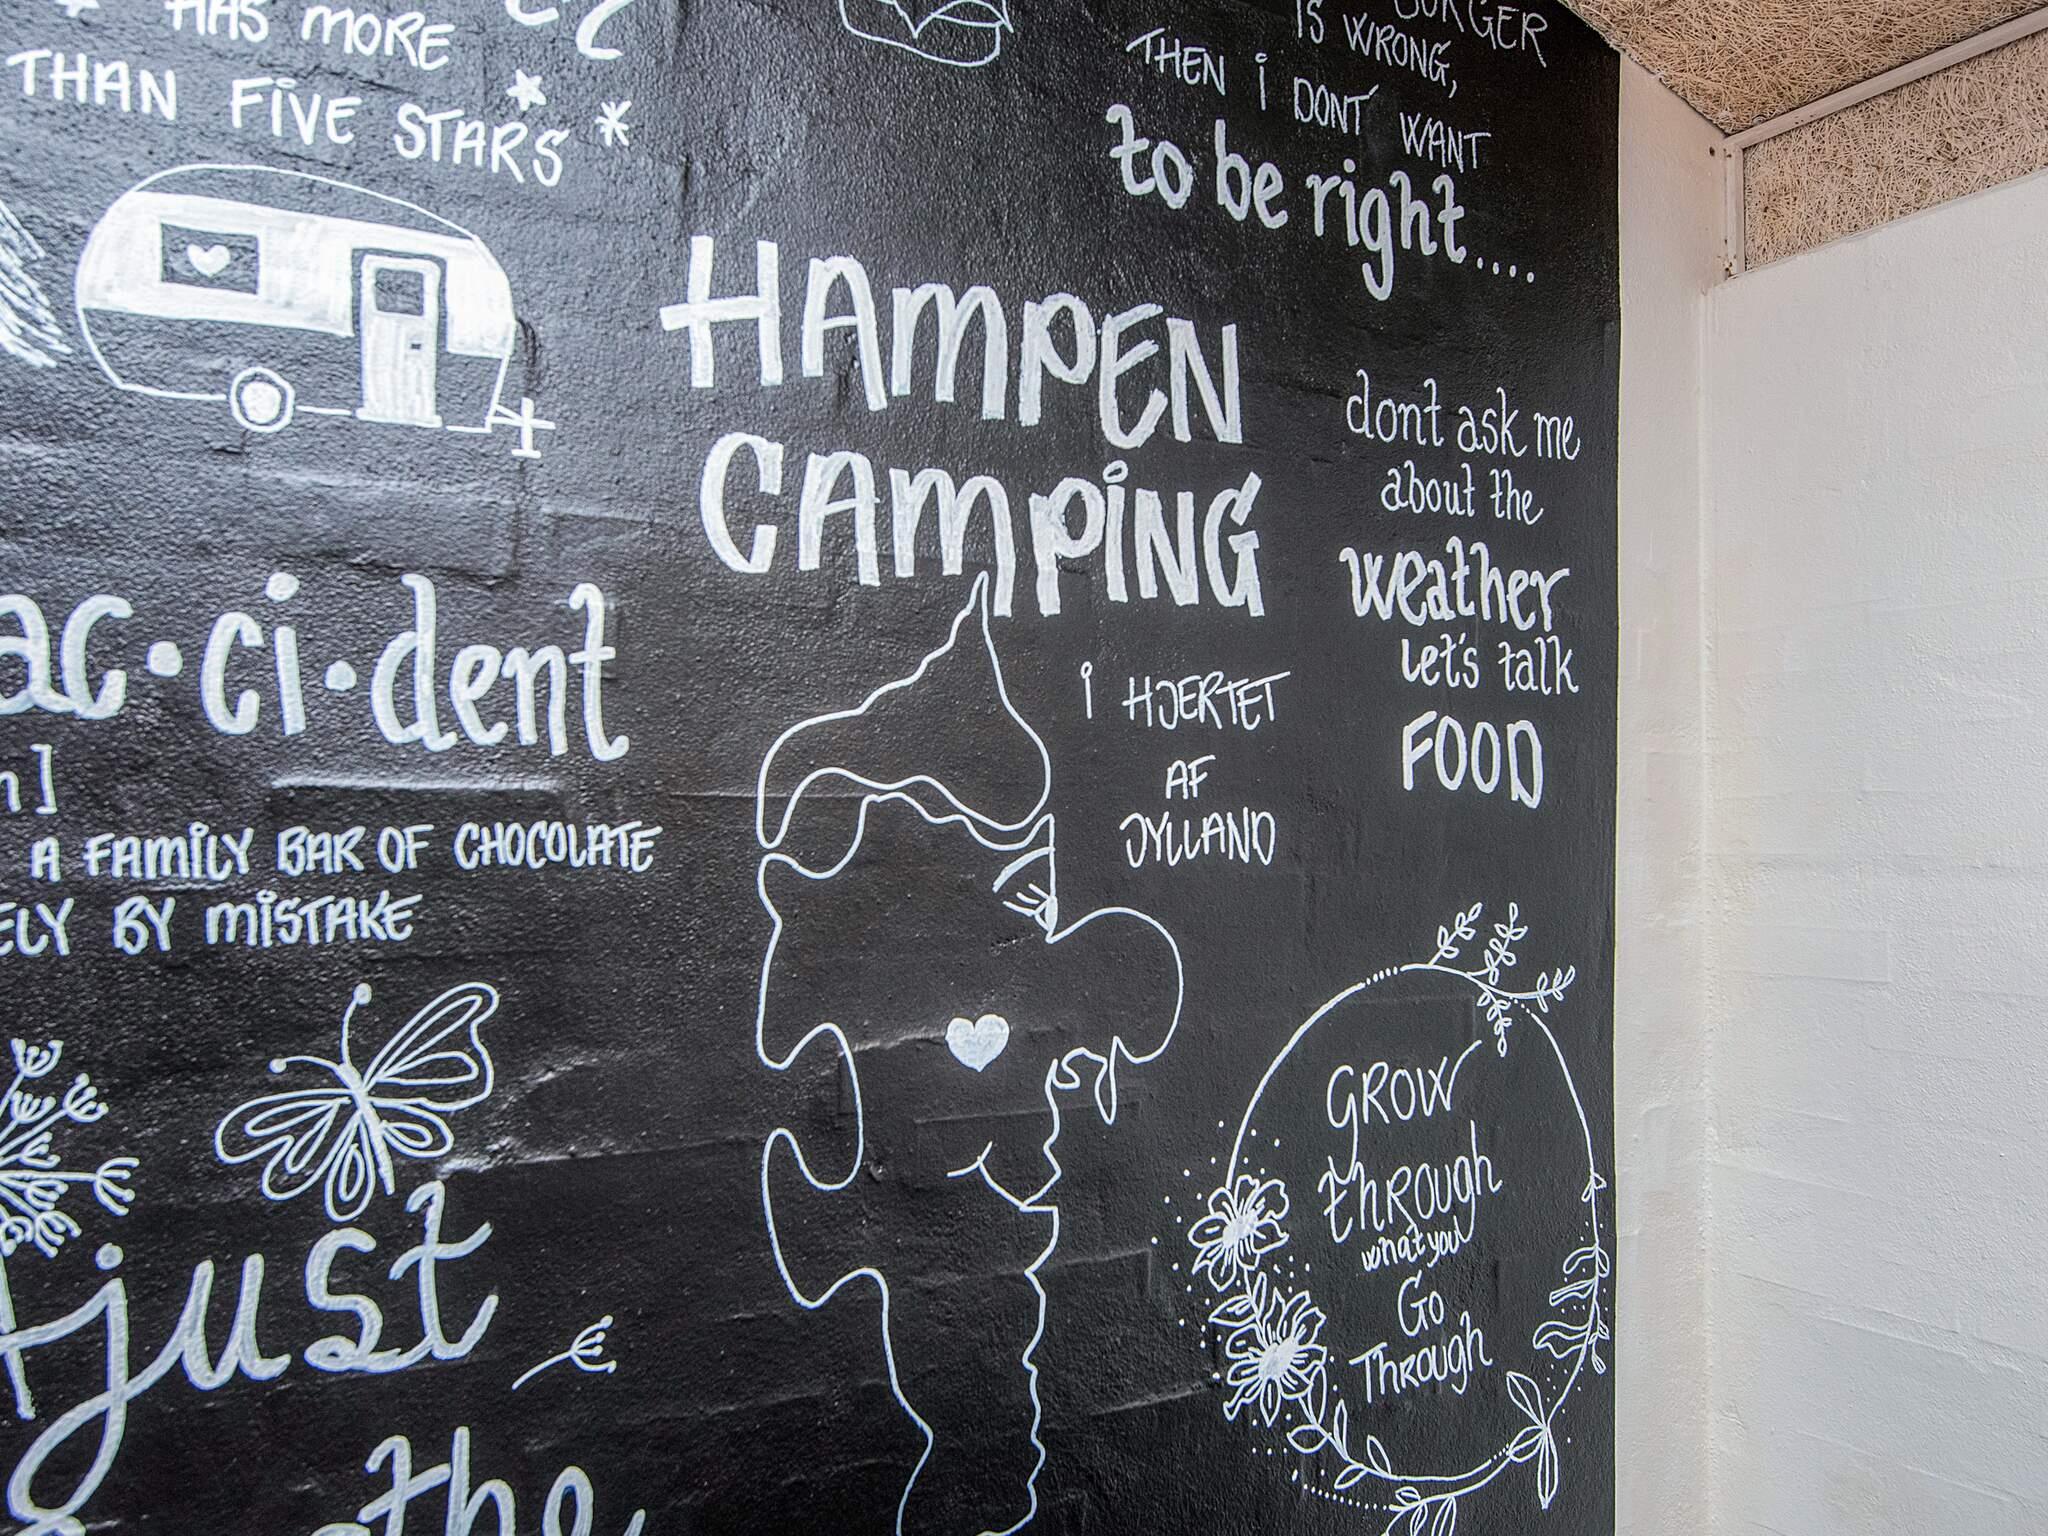 HAS MORE
THAN FIVE STARS
BURGER
IS WRONG,
THEN i DONT WANT
to be right....
HAMPEN
CAMPING
i HJERTET
AF
JYLLAND
dont ask me
about the
weather
Let's talk
FOOD
ac·ci·dent
A FAMILY BAR OF CHOCOLATE
BY MISTAKE
just
the
GROW
THROUGH
what you
GO
THROUGH